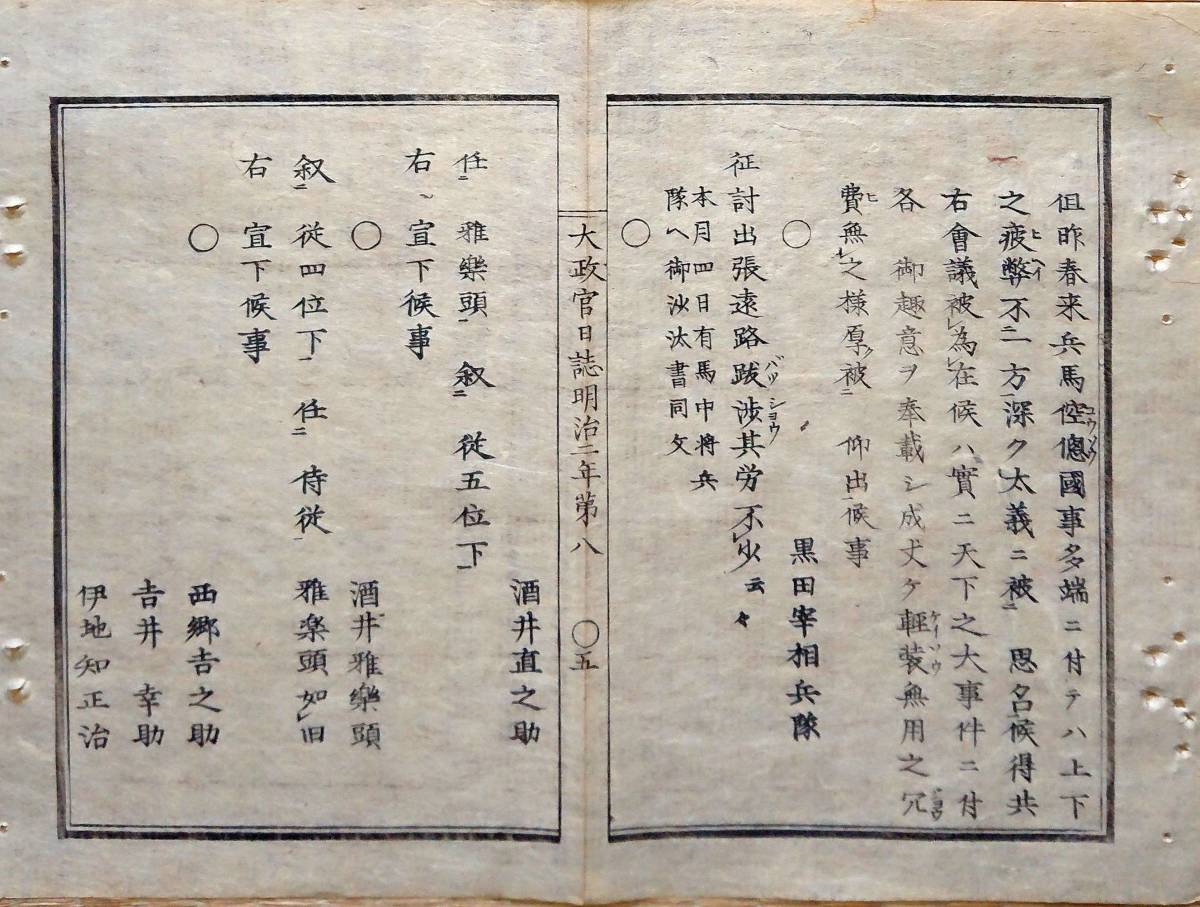 但昨春来兵馬倥傯國事多端ニ付テハ上下
之疲弊不一方深ク太義ニ被 思召候得共
右會議被為在候ハ實ニ天下之大事件ニ付
各 御趣意ヲ奉載シ成丈ケ輕装無用之冗
費無之様厚被 仰出候事
○
黒田宰相兵隊
征討出張遠路跋渉其労不少云々
本月四日有馬中将兵
隊ヘ御沙汰書同文
○
大政官日誌明治二年第八 ○五
酒井直之助
任 雅樂頭 叙 従五位下
右 宣下候事
○
酒井雅樂頭
叙 従四位下 任 侍従 雅楽頭如旧
右 宣下候事
○
西郷吉之助
吉井 幸助
伊地知正治